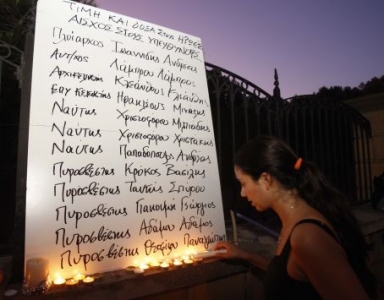 ΤΙΜΗ ΚΑΙ ΔΟΞΑ ΣΤΟΥΣ ΗΡΩΕΣ
ΑΙΣΧΟΣ ΣΤΟΥΣ ΥΠΕΥΘΥΝΟΥΣ
Πλοίαρχος Ιωαννίδης Ανδρέας
Αντ/χος Λάμπρου Λάμπρος
Αρχικελευστής Κλεάνθους Κλεάνθης
Ηρακλέους Μιχάλης
Ναύτης Χριστοφόρου Μιλτιάδης
Ναύτης Χριστοφόρου Χριστάκης
Ναύτης Παπαδόπουλος Αντώνης
Πυροσβέστης Κρόκος Βασίλης
Πυροσβέστης Ταντής Σπύρου
Πυροσβέστης Γιασουμή Γιώργος
Πυροσβέστης Αδάμου Αδάμος
Πυροσβέστης Θεοφίλου Παναγιώτης